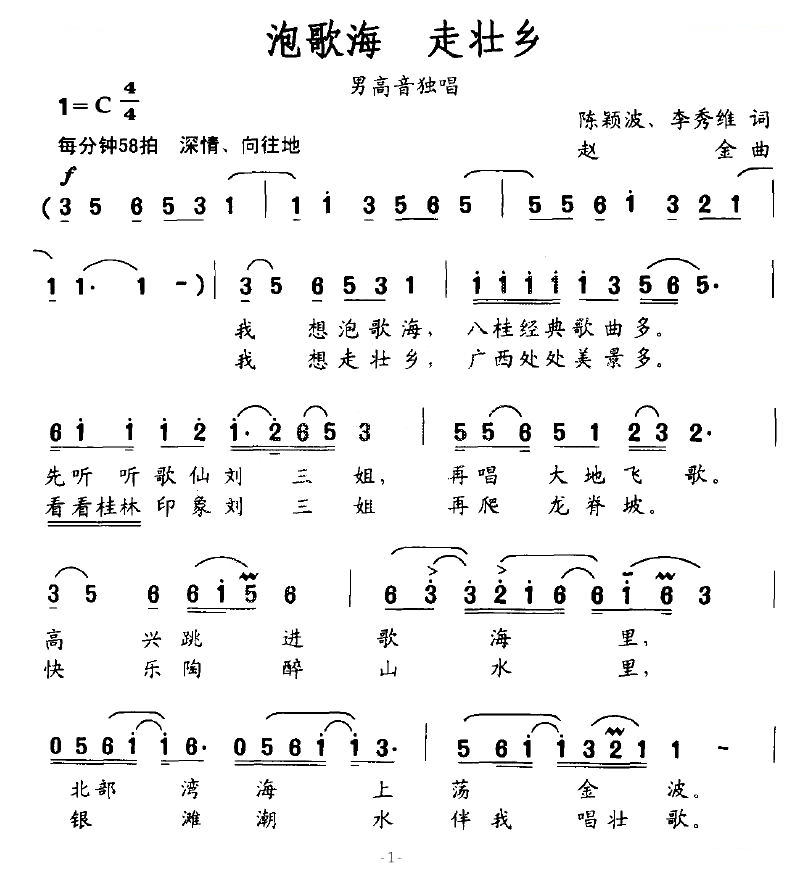 泡歌海 走壮乡
男高音独唱
1=C 4/4
陈颖波、李秀维 词
每分钟58拍 深情、向往地
赵 金 曲
f
(3 5 6 5 3 1 | 1 i 3 5 6 5 | 5 5 6 i 3 2 1
1 1· 1 -) | 3 5 6 5 3 1 | i i i i i 3 5 6 5·
我 想泡歌海, 八桂经典歌曲多。
我 想走壮乡, 广西处处美景多。
6 i i i 2 i· 2 6 5 3 | 5 5 6 5 1 2 3 2·
先听 听歌仙刘 三 姐, 再唱 大地飞 歌。
看看桂林印象刘 三 姐 再爬 龙脊坡。
3 5 6 6 i 5 6 | 6 3 3 2 i 6 6 i 6 3
高 兴跳 进 歌 海 里,
快 乐陶 醉 山 水 里,
0 5 6 i i 6· 0 5 6 i i 3· | 5 6 i i 3 2 1 1 -
北部 湾 海 上 荡 金 波。
银 滩 潮 水 伴我 唱壮 歌。
-1-